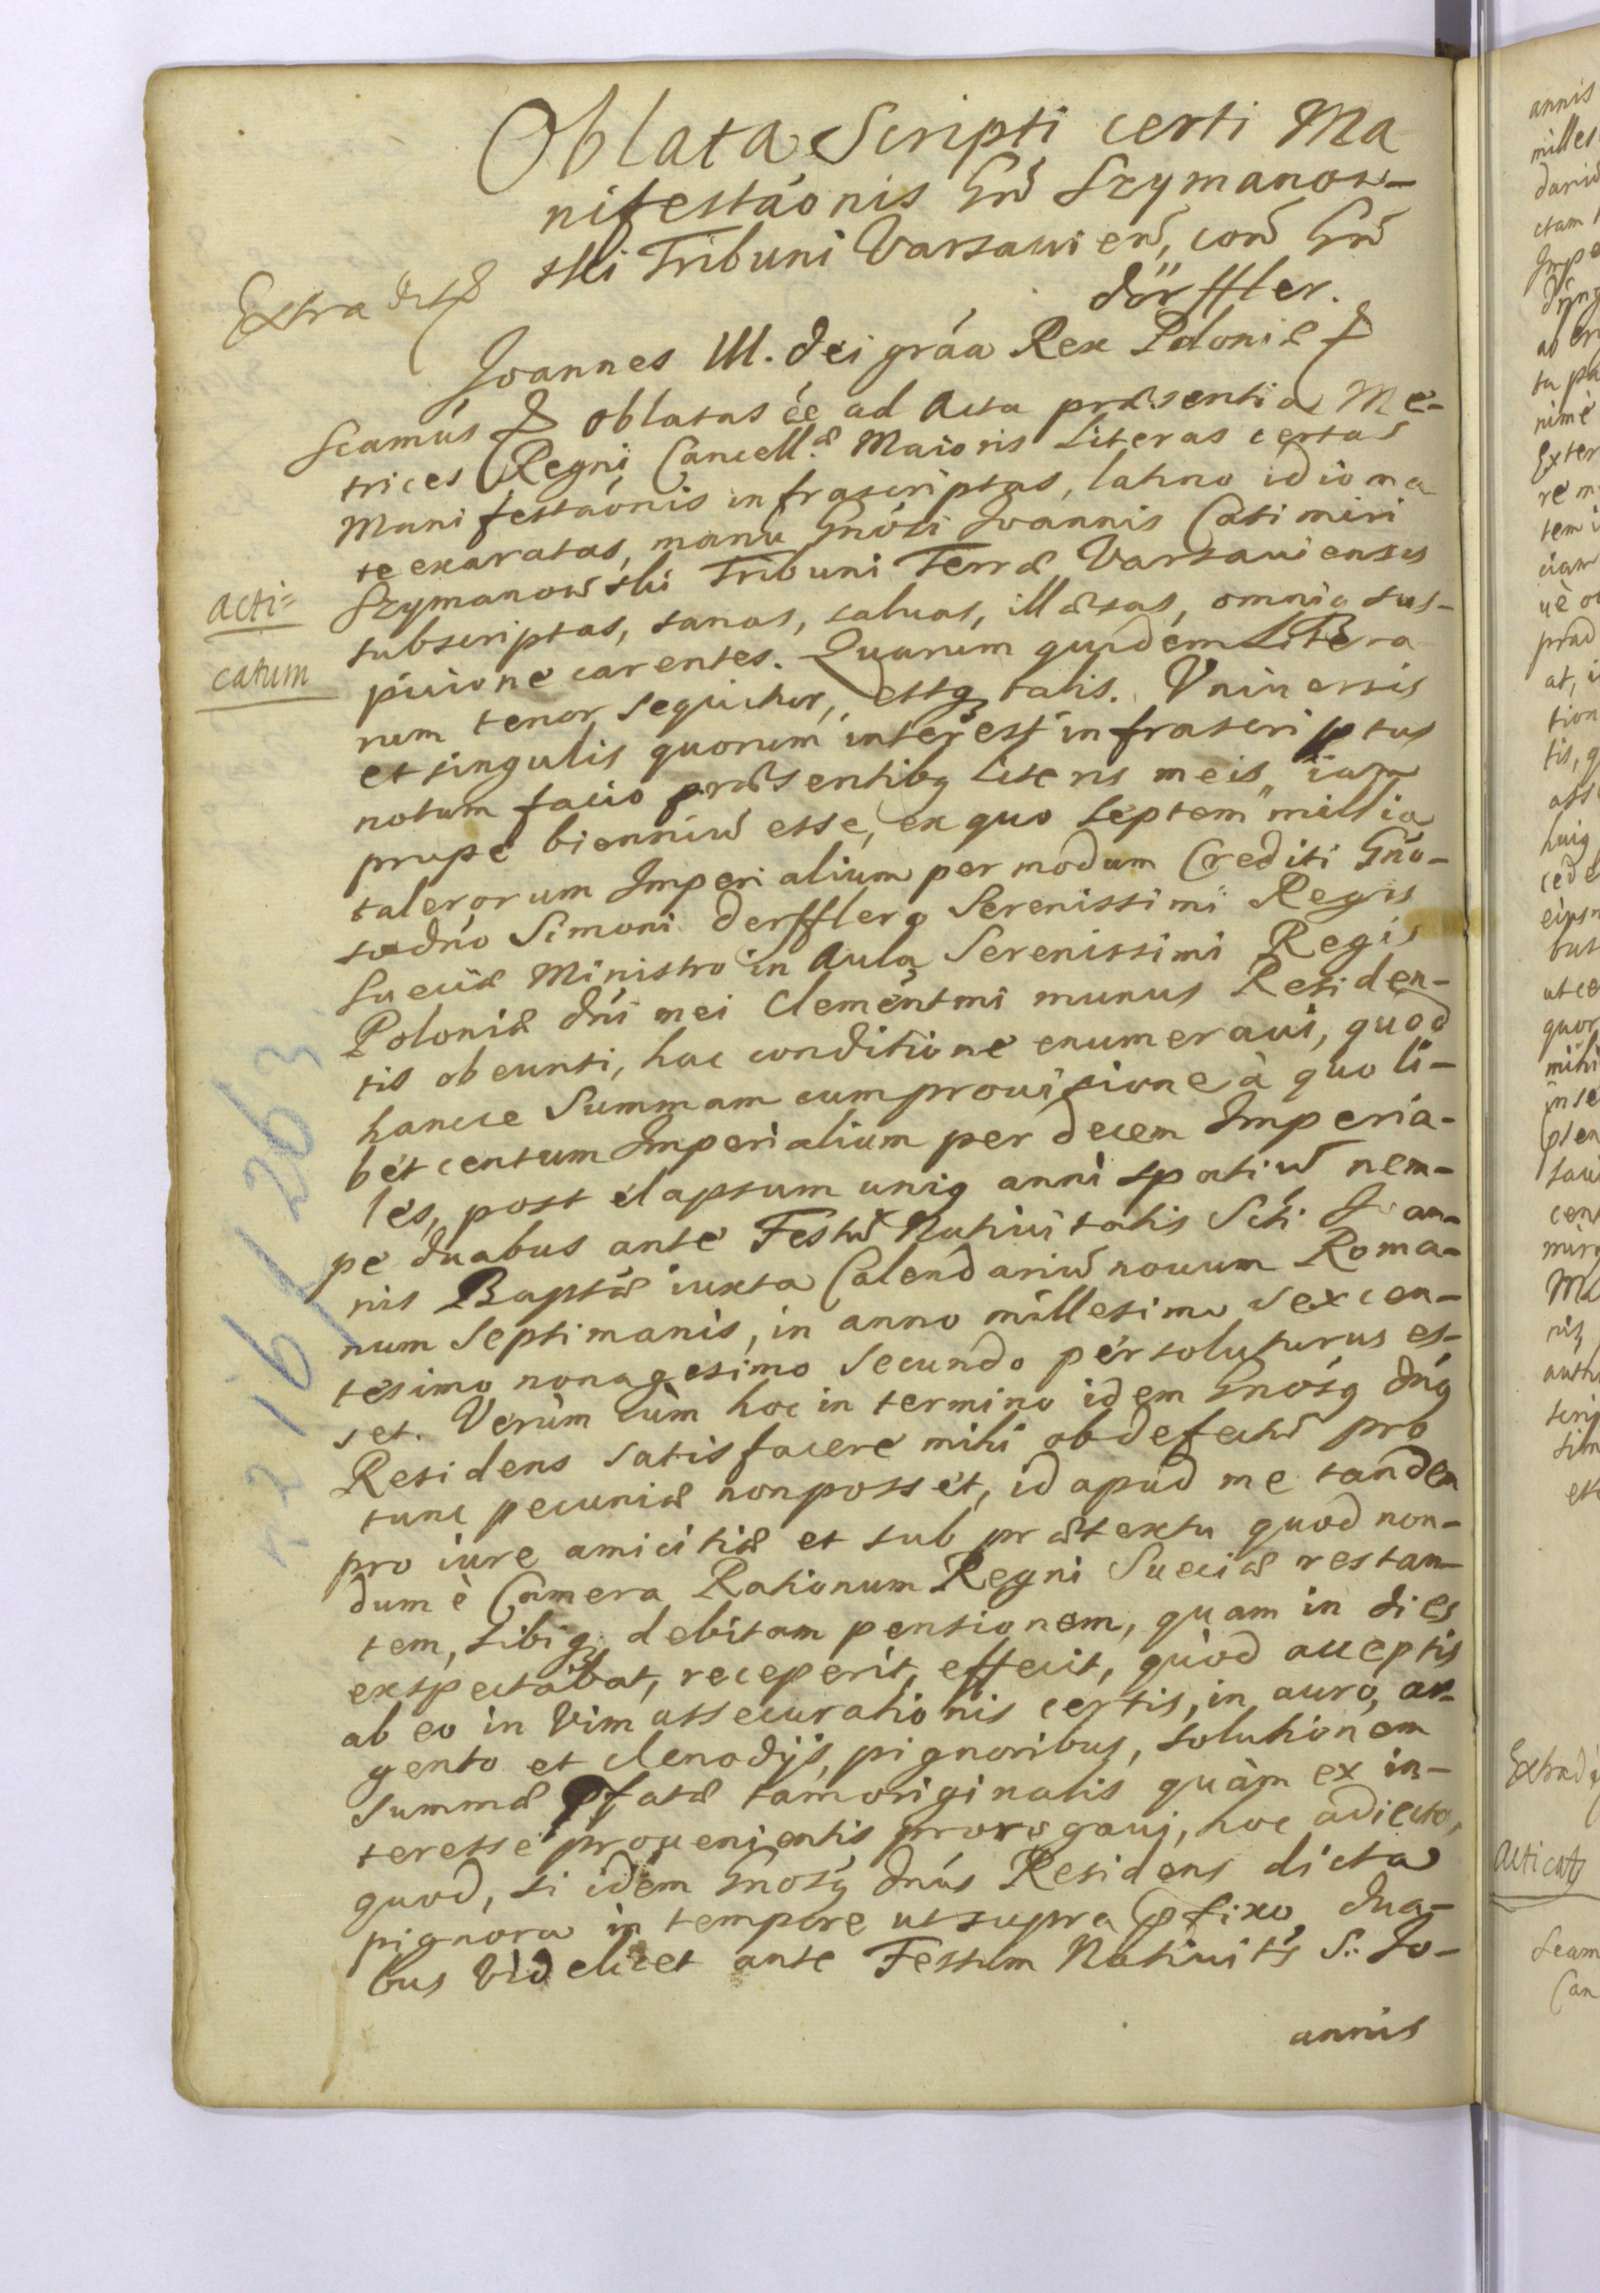 Oblata Scripti certi Ma
nifestáonis Gnõ Szymanow-
ski Tribuni Varsavien̄, con̄ Gnõ
dörffler.
Extra
Joannes III. dei gráa Rex Poloniæ &
scamús & oblatas ée ad Acta præsentia Me-
trices Regni Cancell.æ Maioris Literas certas
Manifestáonis infrascriptas, latino idioma
te exaratas, manu Gnósi Joannis Casimiri
Szymanowski Tribuni Terræ Varsaviensis
Acti=
subscriptas, sanas, saluas, illæsas, omniq sus-
catum
picione carentes. Quarum quidem Litera
rum tenor sequitur, estq talis. Vniuersis
et singulis quorum interest infrascriptus
notum facio præsentibq literis meis, iam
prope bienniū esse, ex quo septem millia
talerorum Imperialium per modum Crediti Gno-
so dno Simoni Derfflero Serenissimi Regis
Sueciæ Ministro in Aula Serenissimi Regis
Poloniæ dni mei Clementmi munus Residen-
tis obeunti, hac conditione enumeraui, quod
hancce Summam cum prouisione à quoli-
bet centum Imperialium per decem Imperia-
les, post elapsum uniq anni spatiū nem-
pe duabus ante Festū Natiuitatis Scti Joan-
nis Baptæ iuxta Calendariū nouum Roma-
num Septimanis, in anno millesimo sexcen-
tesimo nonagesimo secundo persoluturus es-
set. Verùm cùm hoc in termino idem Gnosq dnq
Residens satisfacere mihi ob defectū pro
tunc pecuniæ non posset, id apud me tandem
pro iure amicitiæ et sub prætextu quod non-
dum è Camera Rationum Regni Sueciæ restan-
tem, sibiq debitam pensionem, quam in dies
exspectabat, receperit, effecit, quòd acceptis
ab eo in vim assecurationis certis, in auro, ar-
gento et clenodijs, pignoribus, solutionem
summæ pfatæ tam originalis quàm ex in-
teresse prouenientis prorogaui, hoc adiecto,
quod, si idem Gnosq dnus Residens dicta
pignora in tempore ut supra pfixo, dua-
bus videlicet ante Festum Natiuitis S. Jo-
annis
1263